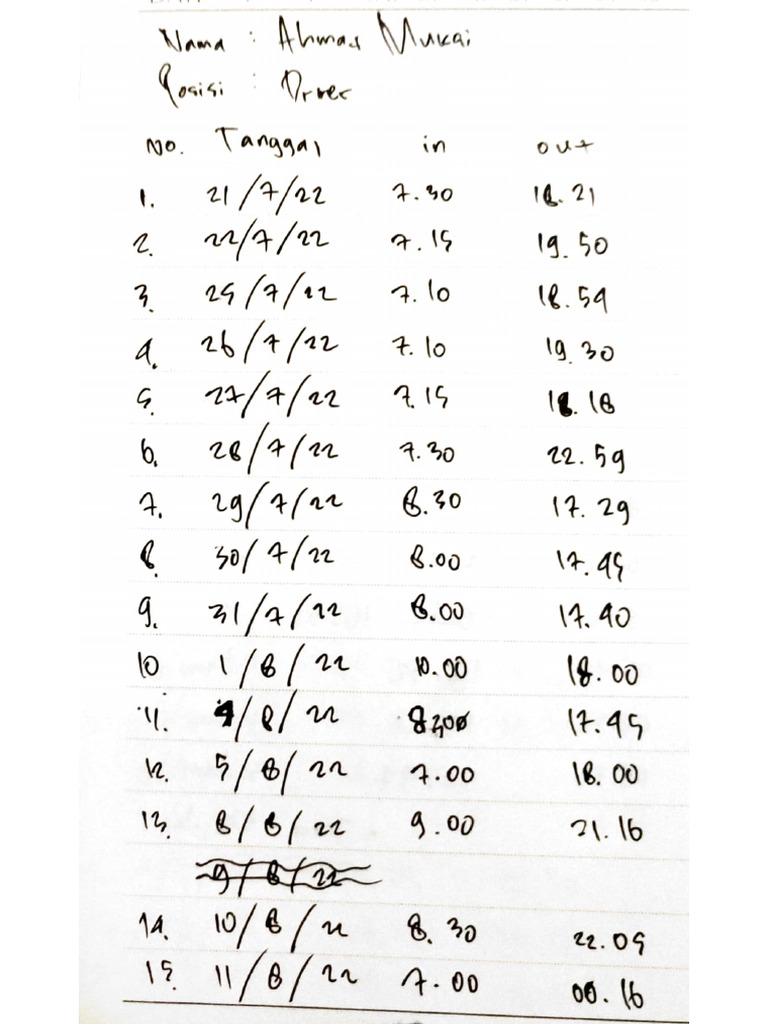 Nama : Ahmad Mukai
Posisi : Driver
No. Tanggal in out
1. 21/7/22 7.30 18.21
2. 22/7/22 7.15 19.50
3. 25/7/22 7.10 18.59
4. 26/7/22 7.10 19.30
5. 27/7/22 7.15 18.18
6. 28/7/22 7.30 22.59
7. 29/7/22 8.30 17.29
8. 30/7/22 8.00 17.45
9. 31/7/22 8.00 17.40
10 1/8/22 10.00 18.00
11. 4/8/22 8,300 17.45
12. 5/8/22 7.00 18.00
13. 8/8/22 9.00 21.16
9/8/22
14. 10/8/22 8.30 22.05
15. 11/8/22 7.00 00.16